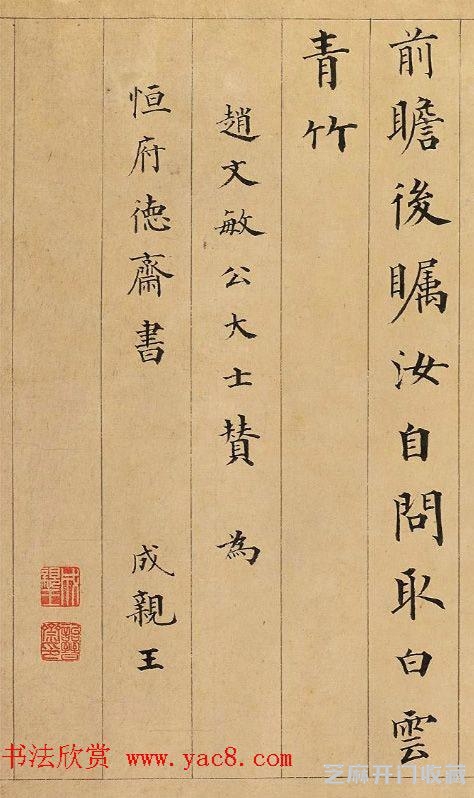 前瞻後瞩汝自問取白雲
青竹
趙文敏公大士賛 為
恒府德齋書 成親王
书法欣赏 www.yac8.com
芝麻开门收藏